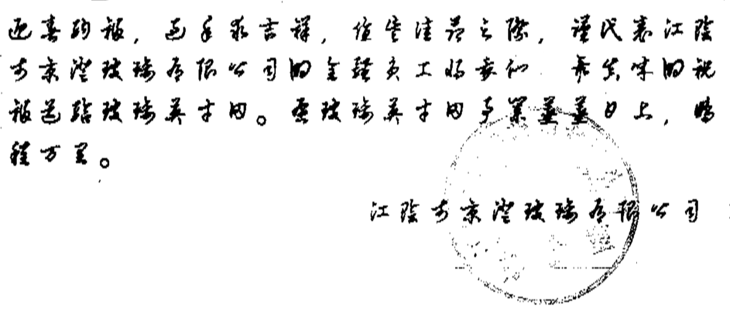 迎春纳福，过年求吉祥，值岁佳节之际，谨代表江阴
市京澄玻璃有限公司的全体员工将我们 最美味的祝
福送给玻璃英才网。愿玻璃英才网事业蒸蒸日上，鹏
程万里。
江阴市京澄玻璃有限公司